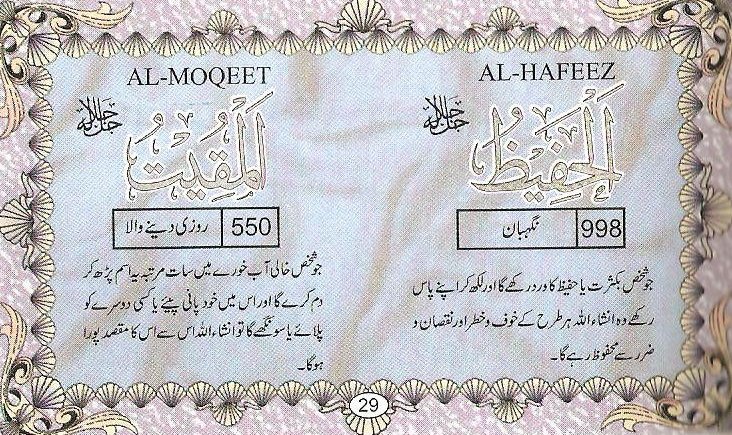 AL-HAFEEZ
جل جلالہ
اَلْحَفِیْظُ
998 نگہبان
جو شخص بکثرت یا حفیظ کا ورد رکھے گا اور لکھ کر اپنے پاس
رکھے وہ انشاء اللہ ہر طرح کے خوف و خطر اور نقصان و
ضرر سے محفوظ رہے گا۔
AL-MOQEET
جل جلالہ
اَلْمُقِیْتُ
550 روزی دینے والا
جو شخص خالی آب خورے میں سات مرتبہ یہ اسم پڑھ کر
دم کرے گا اور اس میں خود پانی پیئے یا کسی دوسرے کو
پلائے یا سونگھے گا تو انشاء اللہ اس سے اس کا مقصد پورا
ہوگا۔
29